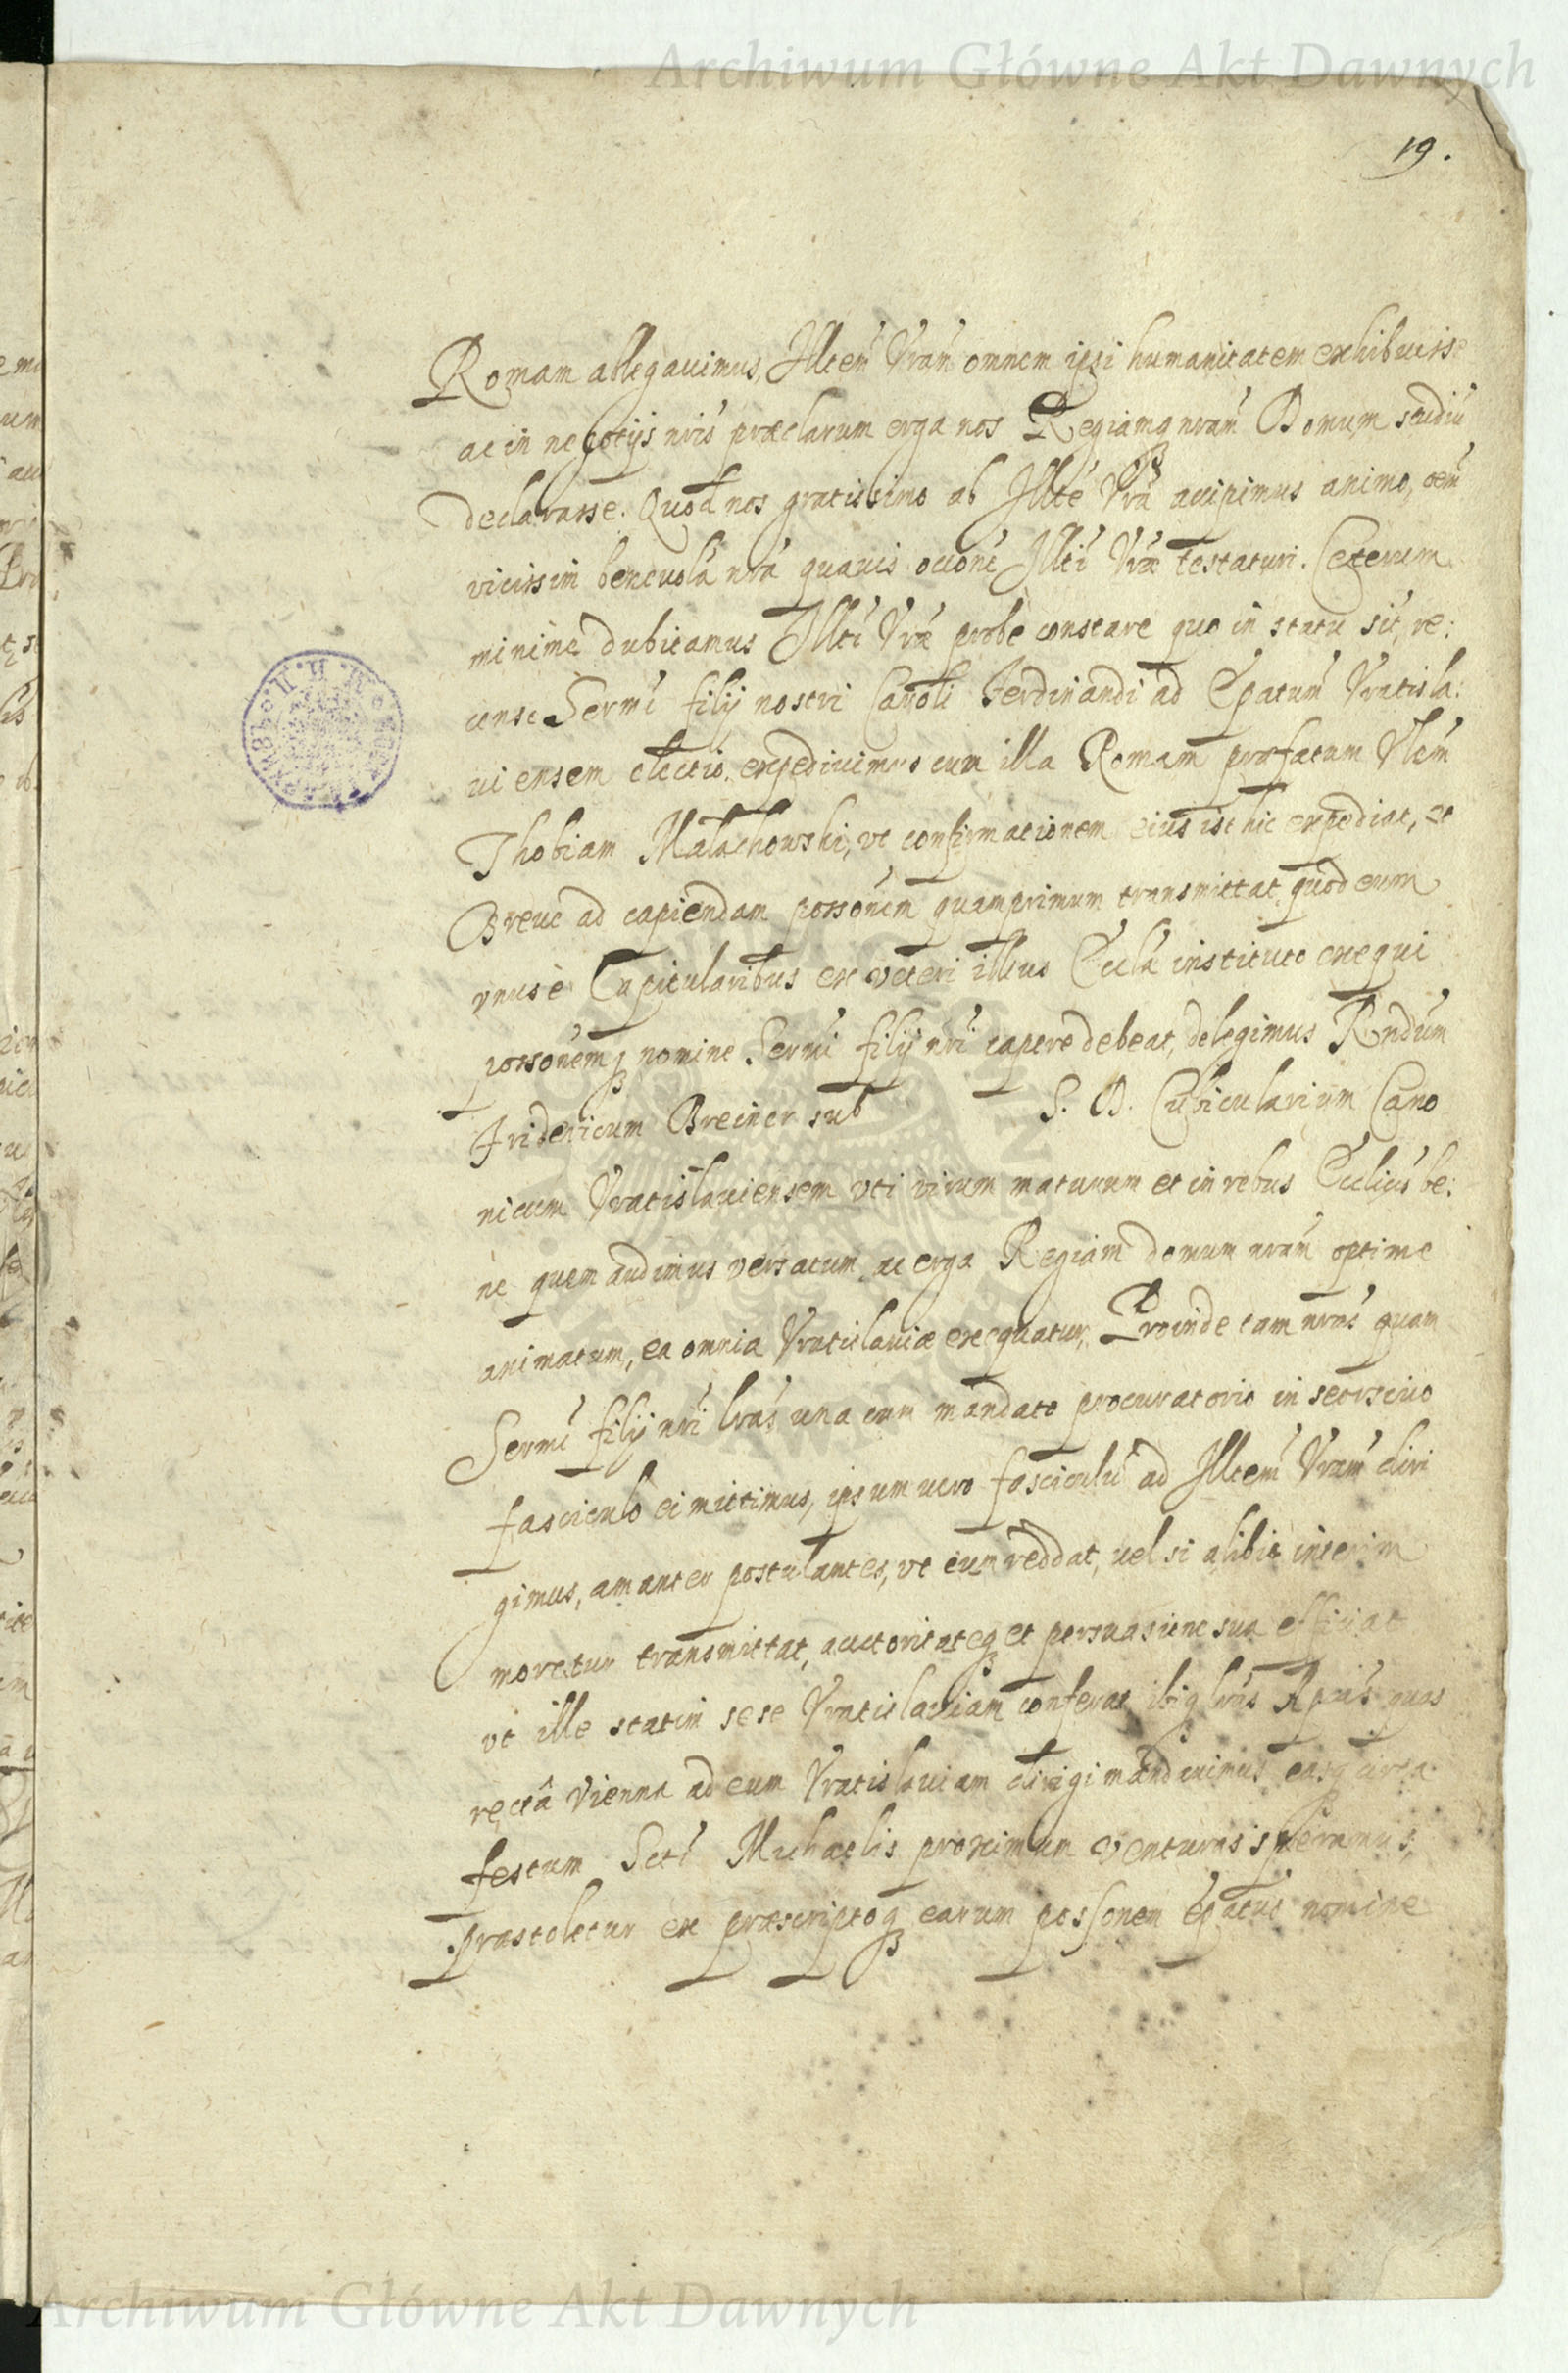 Archiwum Główne Akt Dawnych
19.
Romam ablegauimus, Illtem̃ Vram̃ omnem ipsi humanitatem exhibuisse
ac in negotijs nris̃ præclarum erga nos Regiamq nram̃ Domum studiũ
declarasse. Quod nos gratissimo ab Illte Vra accipimus animo, oem̃
vicissim beneuola nra quauis occone Illti Vræ testaturi. Ceterum
minime dubitamus Illti Vræ probe constare quo in statu sit, re:
cens Sermi filij nostri Caroli Ferdinandi ad Epatum Vratisla:
uiensem electio, expediuimus cum illa Romam præfatum Vlem̃
Thobiam Malachowski, vt confirmationem eius isthic expediat, et
Breue ad capiendam possonem quamprimum transmittat, quod cum
vnus è Capitularibus ex veteri illius Eccla instituto exequi
possonemq nomine Sermi filij nri capere debeat, delegimus Rndum
Fridericum Breiner sub S. D. Cubicularium Cano
nicum Vratislauiensem vti virum maturum et in rebus Ecclicis be:
ne quem audimus versatum ac erga Regiam domum nram̃ optime
animatum, ea omnia Vratislauiæ exequatur, Proinde tam nras̃ quam
Sermi filij nri lras̃ una cum mandato procuratorio in seorsciuo
fasciculo ei mittimus, ipsum uero fasciculũ ad Illtem̃ Vram̃ diri
gimus, amanter postulantes, vt eum reddat, uel si alibi interim
moretur transmittat, auctoritateq et persuasione sua efficiat
vt ille statim sese Vratislauiam conferat ibiq lras̃ Aplicas quas
rectâ Vienna ad eum Vratislauiam dirigi mandauimus easq circa
festum Scti Michaelis proximum venturas speramus,
præstoletur ex præscriptoq earum possonem Epatus nomine
Archiwum Główne Akt Dawnych